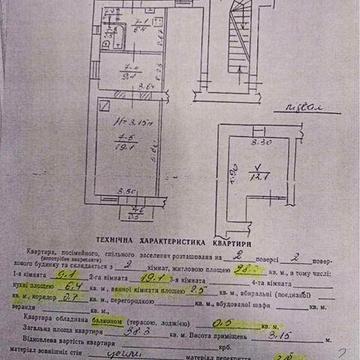 7-1
6.4
7-4
9.1
3.64
Н=3.15м
7-5
19.1
3.50
підвал
3.30
V
12.1
ТЕХНІЧНА ХАРАКТЕРИСТИКА КВАРТИРИ
Квартира, посімейного, спільного заселення розташована на 2 поверсі 2 повер-
нового будинку та складається з 2 кімнат, житловою площею кв. м., в тому числі:
1-а кімната 9.1 2-га кімната 19.1 3-я кімната 4-та кімната
кухні площею 6.4 кв. м., ванної кімнати площею 2.5 кв. м., вбиральні
кв. м., коридор 0.7 кв. м., перегородкою кв. м., вбудованої шафи кв. м.,
веранди
Квартира обладнана балконом (терасою, лоджією) 0.5 кв. м.
Загальна площа квартири 38.3 кв. м. Висота приміщень 3.15 м.
Відновлена вартість квартири крб.
матеріал зовнішніх стін цегла матеріал перекриття